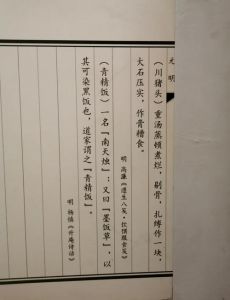 元 明
（川猪头）重汤蒸顿煮烂，剔骨，扎缚作一块，
大石压实，作膏糟食。
明 高濂《遵生八笺·饮馔服食笺》
（青精饭）一名「南天烛」；又曰「墨饭草」，以
其可染黑饭也，道家谓之「青精饭」。
明 杨慎《升庵诗话》